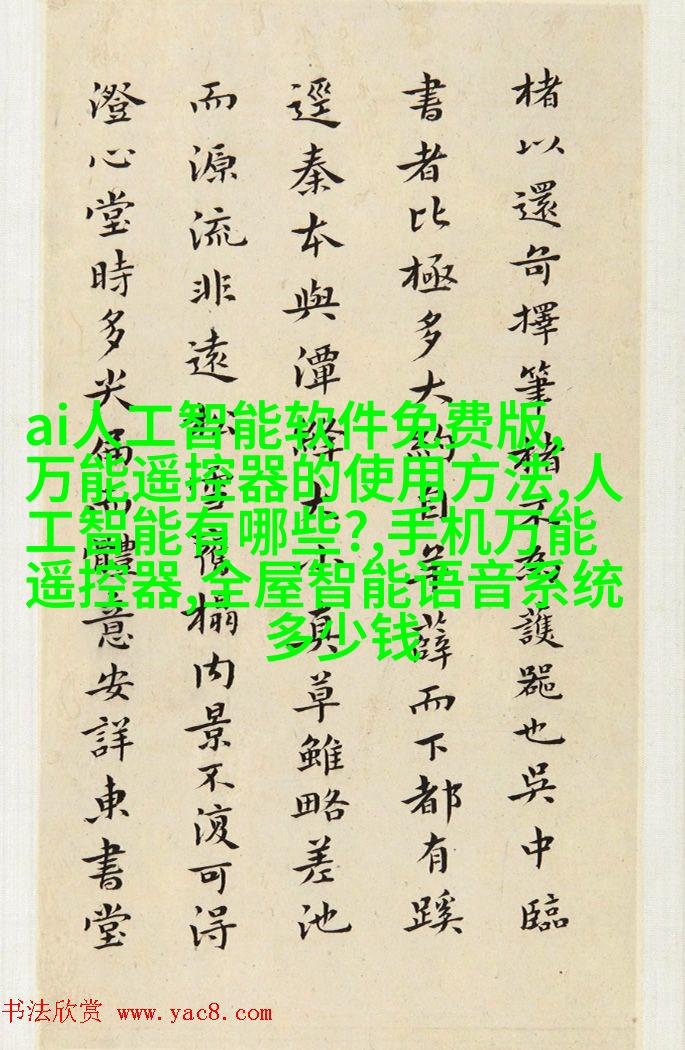 楮以還奇擇筆楮不為護器也吳中臨
書者比極多大約自華薛而下都有蹊
逕秦本與潭絳大小真草雖略差池
而源流非遠松雪搨內景不復可得
澄心堂時多尖而體意安詳東書堂
ai人工智能软件免费版,
万能遥控器的使用方法,人
工智能有哪些?,手机万能
遥控器,全屋智能语音系统
多少钱
书法欣赏 www.yac8.com